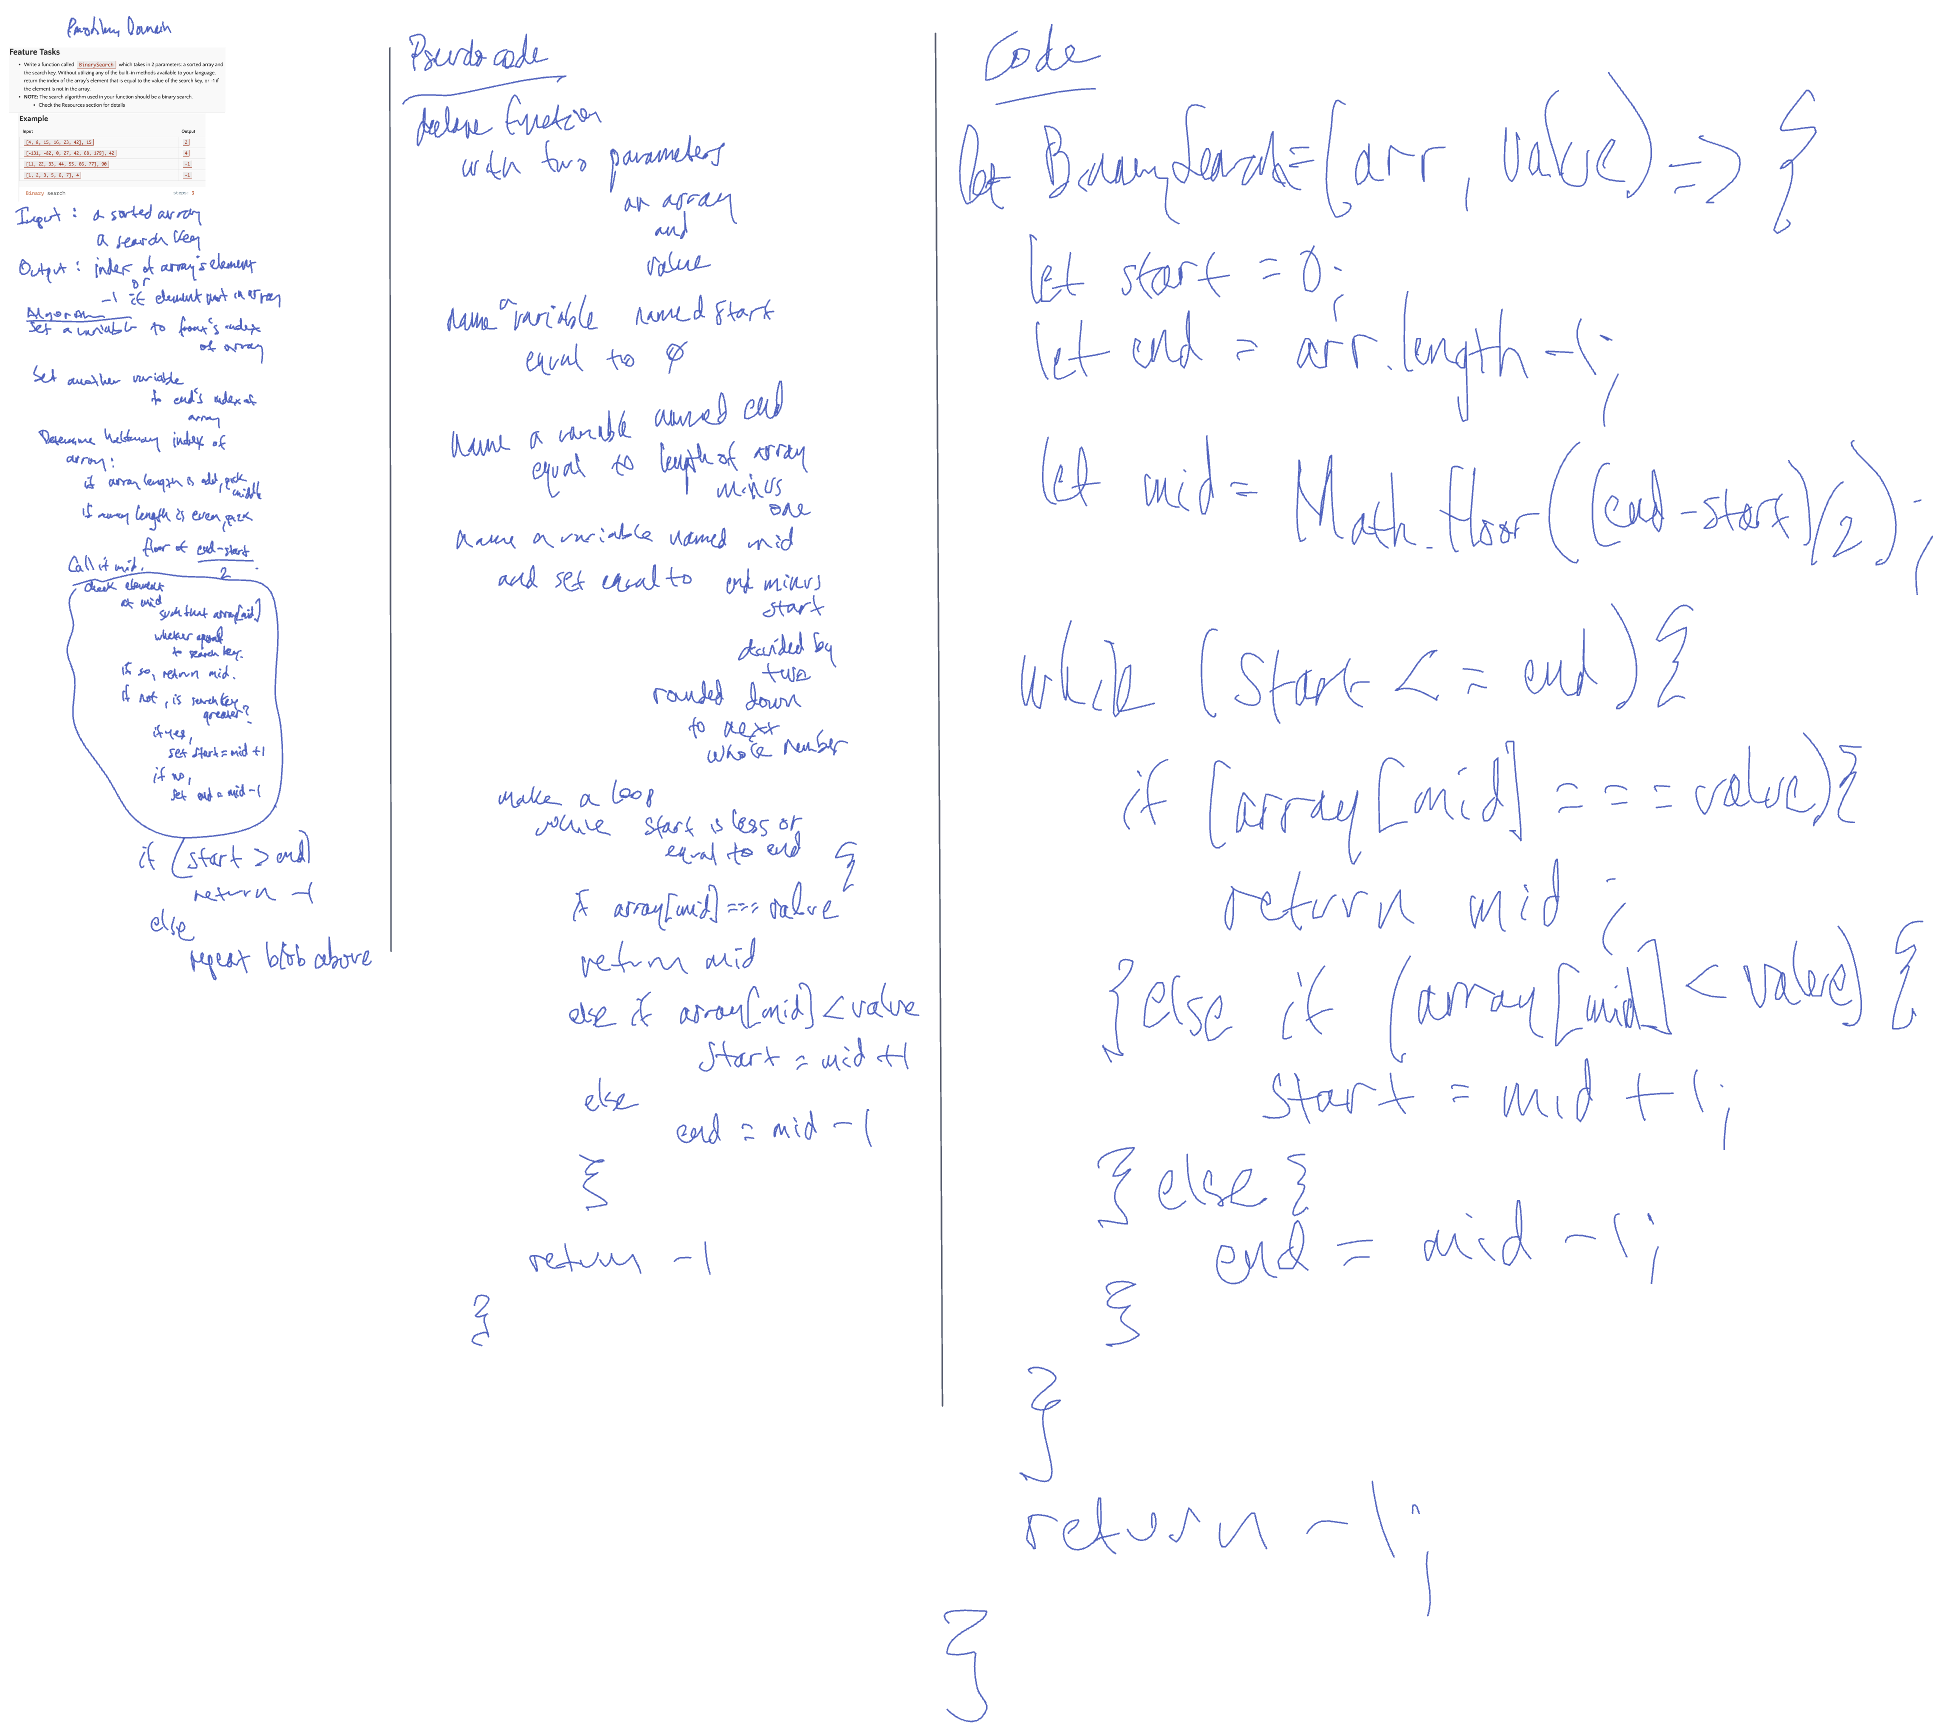 Problem Domain
Feature Tasks
• Write a function called BinarySearch which takes in 2 parameters: a sorted array and
the search key. Without utilizing any of the built-in methods available to your language,
return the index of the array's element that is equal to the value of the search key, or -1 if
the element is not in the array.
• NOTE: The search algorithm used in your function should be a binary search.
• Check the Resources section for details
Example
Input Output
[4, 8, 15, 16, 23, 42], 15 2
[-131, -82, 0, 27, 42, 68, 179], 42 4
[11, 22, 33, 44, 55, 66, 77], 90 -1
[1, 2, 3, 5, 6, 7], 4 -1
Binary search
Input : a sorted array
a search key
Output : index of array's element
or
-1 if element not in array
Algorithm
Set a variable to front's index
of array
Set another variable
to end's index of
array
Determine halfway index of
array:
if array length is odd, pick
middle
if array length is even, pick
floor of end-start
2
Call it mid.
check element
at mid
such that array[mid]
whether equal
to search key.
if so, return mid.
if not, is search key
greater?
if yes,
set start = mid +1
if no,
set end = mid -1
if (start > end)
return -1
else
repeat blob above
Pseudocode
declare function
with two parameters
an array
and
value
name a variable named start
equal to 0
name a variable named end
equal to length of array
minus
one
name a variable named mid
and set equal to end minus
start
divided by
two
rounded down
to next
whole number
make a loop
while start is less or
equal to end {
if array[mid] === value
return mid
else if array[mid] < value
start = mid +1
else
end = mid -1
}
return -1
}
Code
let BinarySearch = (arr, value) => {
let start = 0;
let end = arr.length -1;
let mid = Math.floor((end - start)/2);
while (start <= end){
if (array[mid] === value){
return mid;
}else if (array[mid] < value) {
start = mid + 1;
} else {
end = mid -1;
}
}
return -1;
}